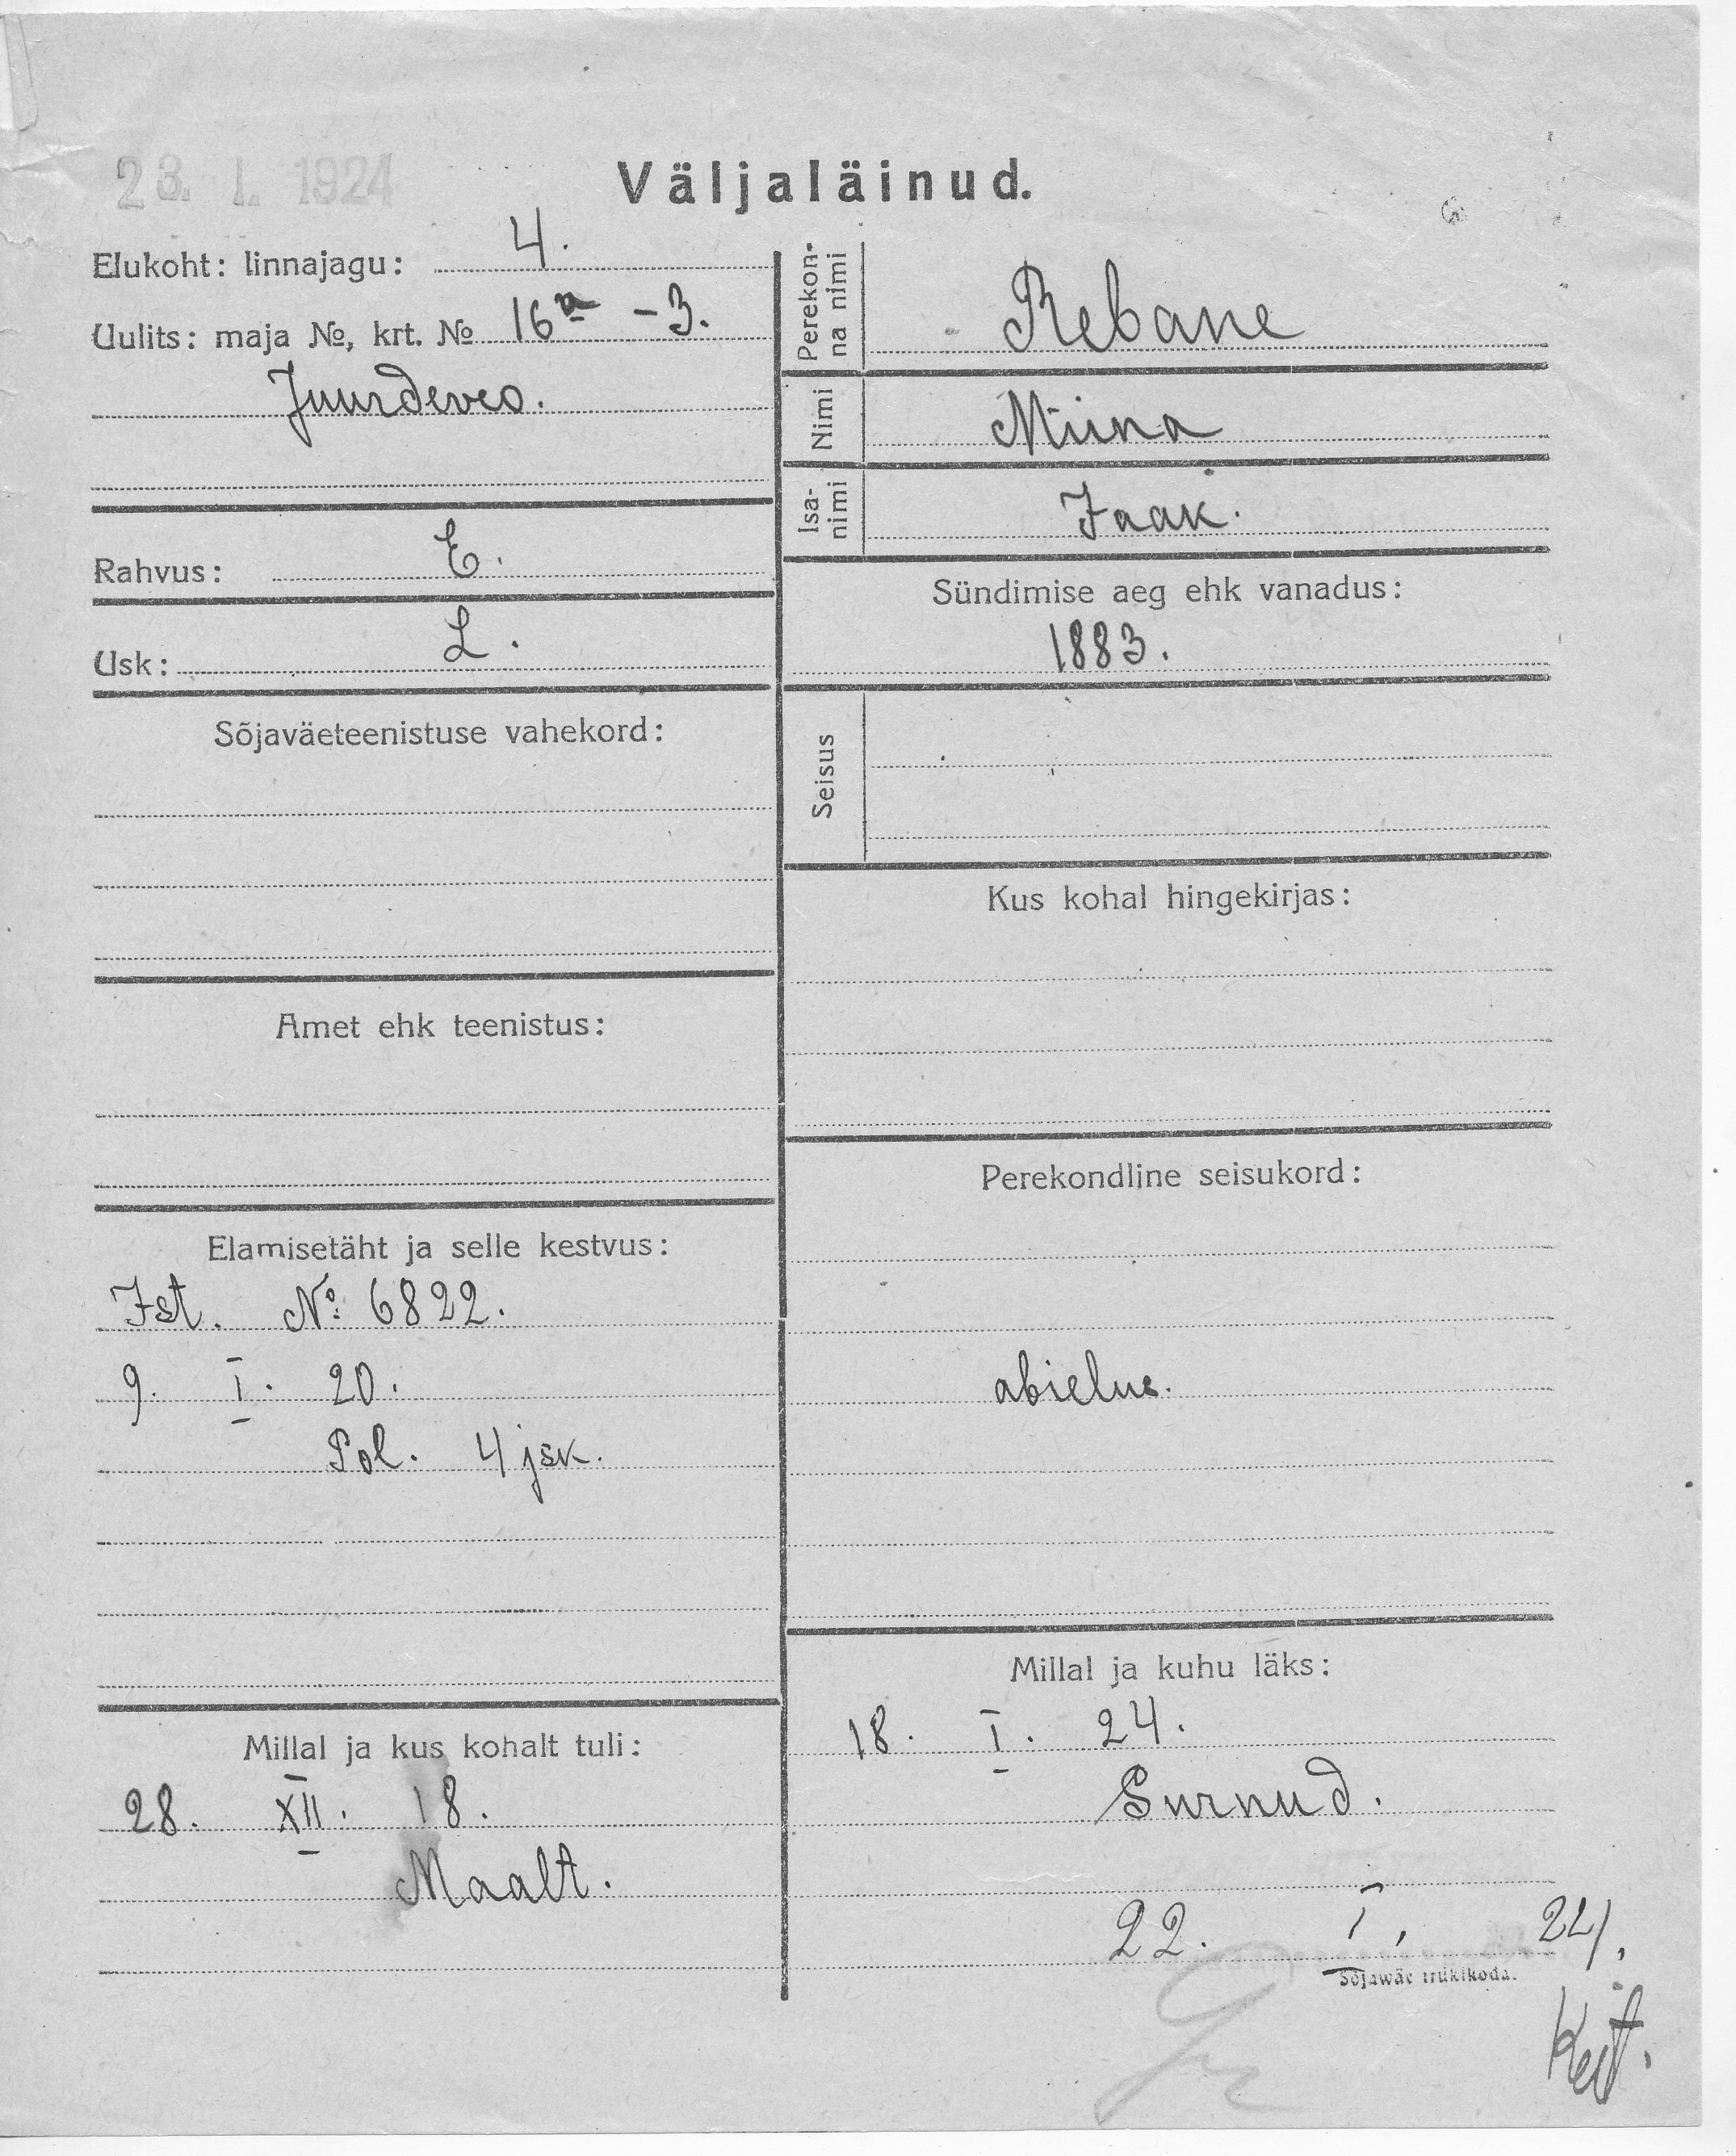 23. I. 1924
Väljaläinud.
Elukoht: linnajagu: 4.
Uulits: maja №, krt. № 16a - 3.
Juurdeveo.
Rahvus: E.
Usk: L.
Sõjaväeteenistuse vahekord:
Amet ehk teenistus:
Elamisetäht ja selle kestvus:
Ist. № 6822.
9. I. 20.
Pol. 4 jsk.
Millal ja kus kohalt tuli:
28. XII. 18.
Maalt.
Perekon-
na nimi
Rebane
Nimi
Miina
Isa-
nimi
Jaak.
Sündimise aeg ehk vanadus:
1883.
Seisus
Kus kohal hingekirjas:
Perekondline seisukord:
abielus.
Millal ja kuhu läks:
18. I. 24.
Surnud.
22. I. 24.
Sõjawäe trükikoda.